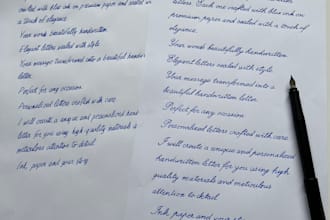 crafted with blue ink on premium paper and sealed with
a touch of elegance.
Your words beautifully handwritten.
Elegant letters sealed with style.
Your message transformed into a beautiful handwritten
letter.
Perfect for any occasion.
Personalised letters crafted with care.
I will create a unique and personalised hand
letter for you using high quality materials a
meticulous attention to detail.
Ink, paper and your story
letters. Each one crafted with blue ink on
premium paper and sealed with a touch of
elegance.
Your words beautifully handwritten.
Elegant letters sealed with style.
Your message transformed into a
beautiful handwritten letter.
Perfect for any occasion.
Personalised letters crafted with care.
I will create a unique and personalised
handwritten letter for you using high
quality materials and meticulous
attention to detail.
Ink, paper and your st